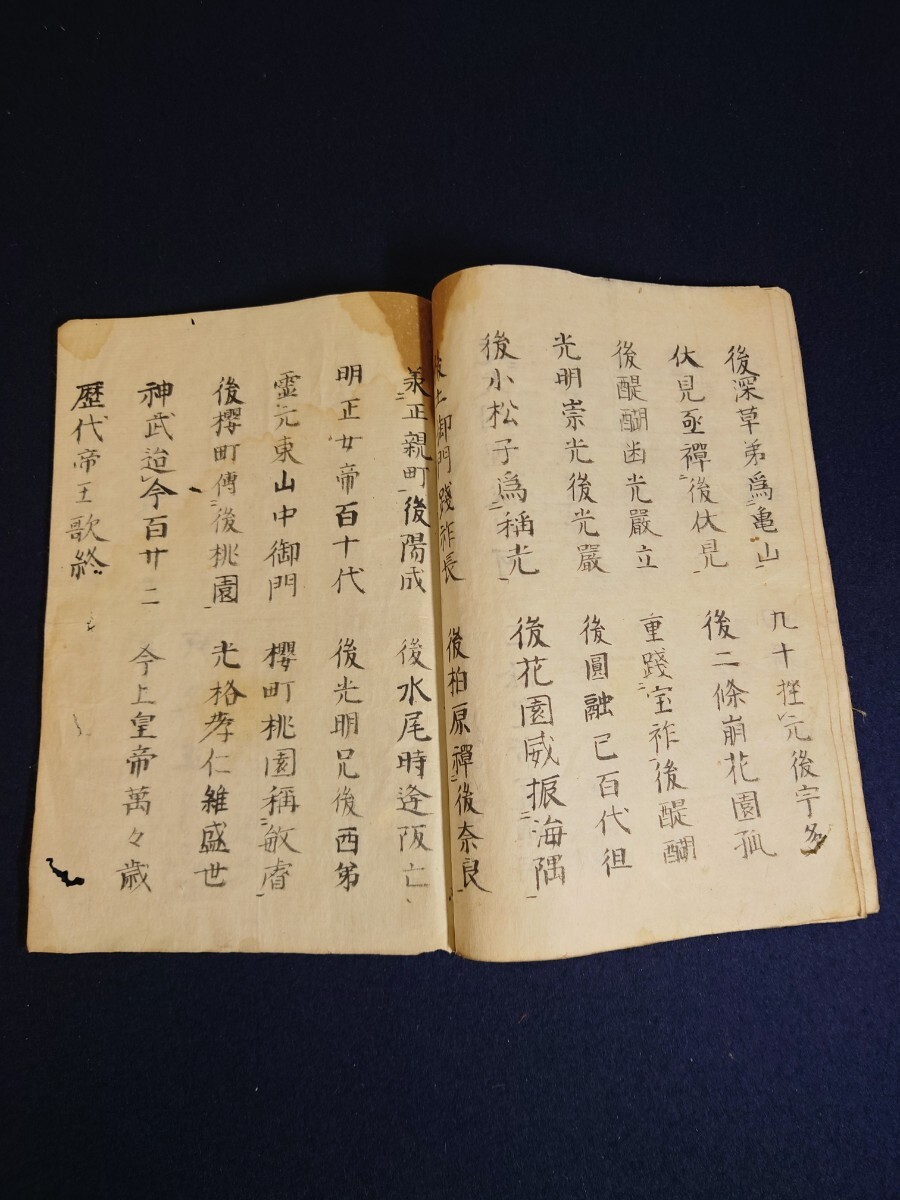 後深草弟爲亀山　九十挫元後宇多
伏見亟禪後伏見　後二條崩花園孤
後醍醐光嚴立　重踐宝祚後醍醐
光明崇光後光嚴　後圓融已百代徂
後小松子爲稱光　後花園威振海隅
後土御門踐祚長　後柏原禪後奈良
兼正親町後陽成　後水尾時逢阪亡
明正女帝百十代　後光明兄後西弟
霊元東山中御門　櫻町桃園稱敏睿
後櫻町傳後桃園　光格孝仁雖盛世
神武迨今百廿二　今上皇帝萬々歳
歴代帝王歌終